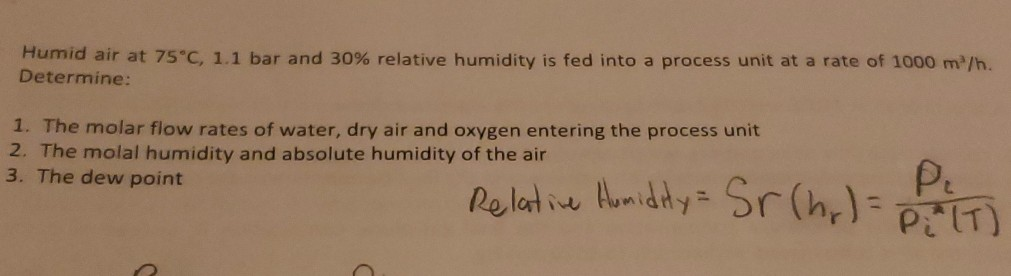 Humid air at 75°C, 1.1 bar and 30% relative humidity is fed into a process unit at a rate of 1000 m³/h.
Determine:
1. The molar flow rates of water, dry air and oxygen entering the process unit
2. The molal humidity and absolute humidity of the air
3. The dew point
Relative Humidity = Sr (hr) = Pi / Pi*(T)